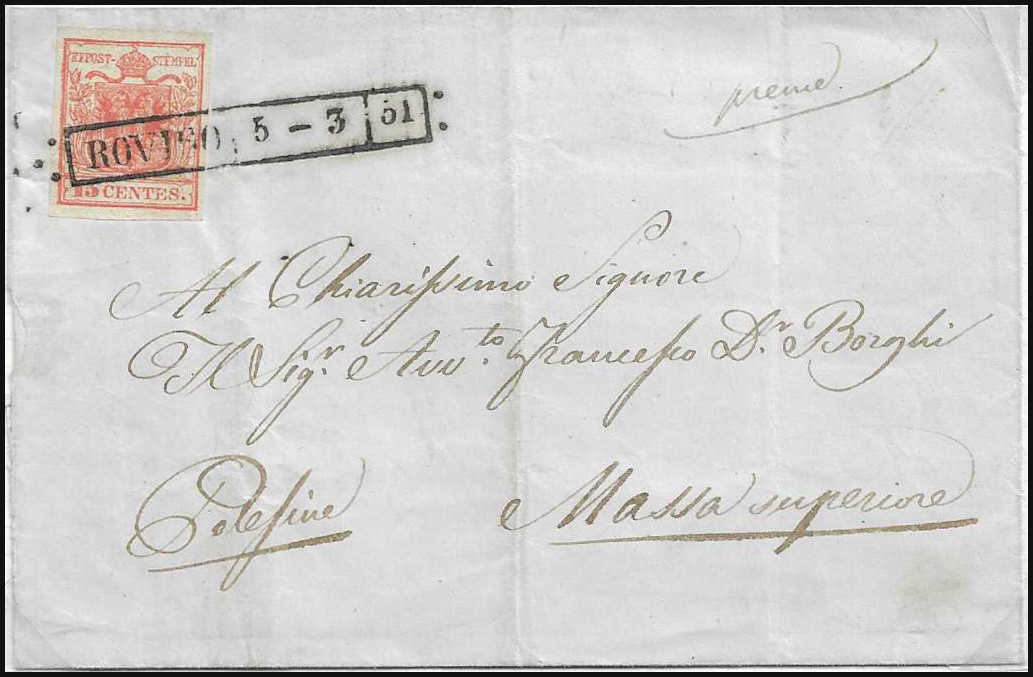 KKPOST-STEMPEL
15 CENTES.
ROVIGO 5 - 3 51
preme
Al Chiarissimo Signore
Il Sigr. Avvto. Francesco Dr. Borghi
Polesine Massa superiore